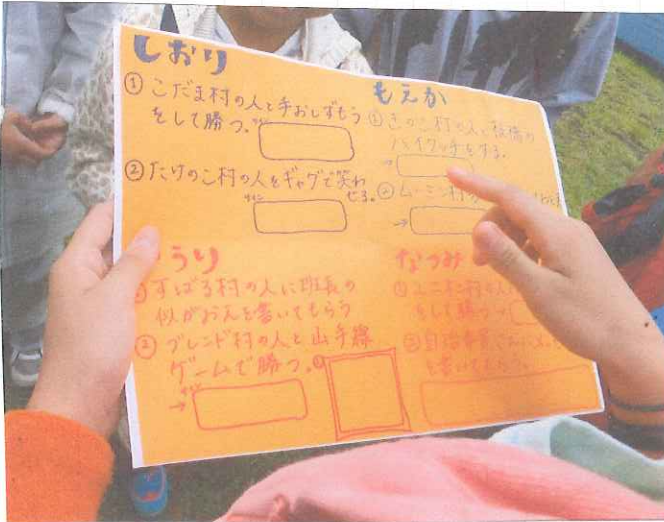 しおり
① こだま村の人と手おしずもう
をして勝つ。サイン
② たけのこ村の人をギャグで笑わ
せる。
サイン
もえか
① きのこ村の人と
ハイタッチをする。
→
② ムーミン村の
→
うり
① すばる村の人に班長の
似がおえを書いてもらう
② ブレンド村の人と山手線
ゲームで勝つ。
サイン
→
なつみ
① ユニオン村の人
をして勝つ
②
を書いてもらう。